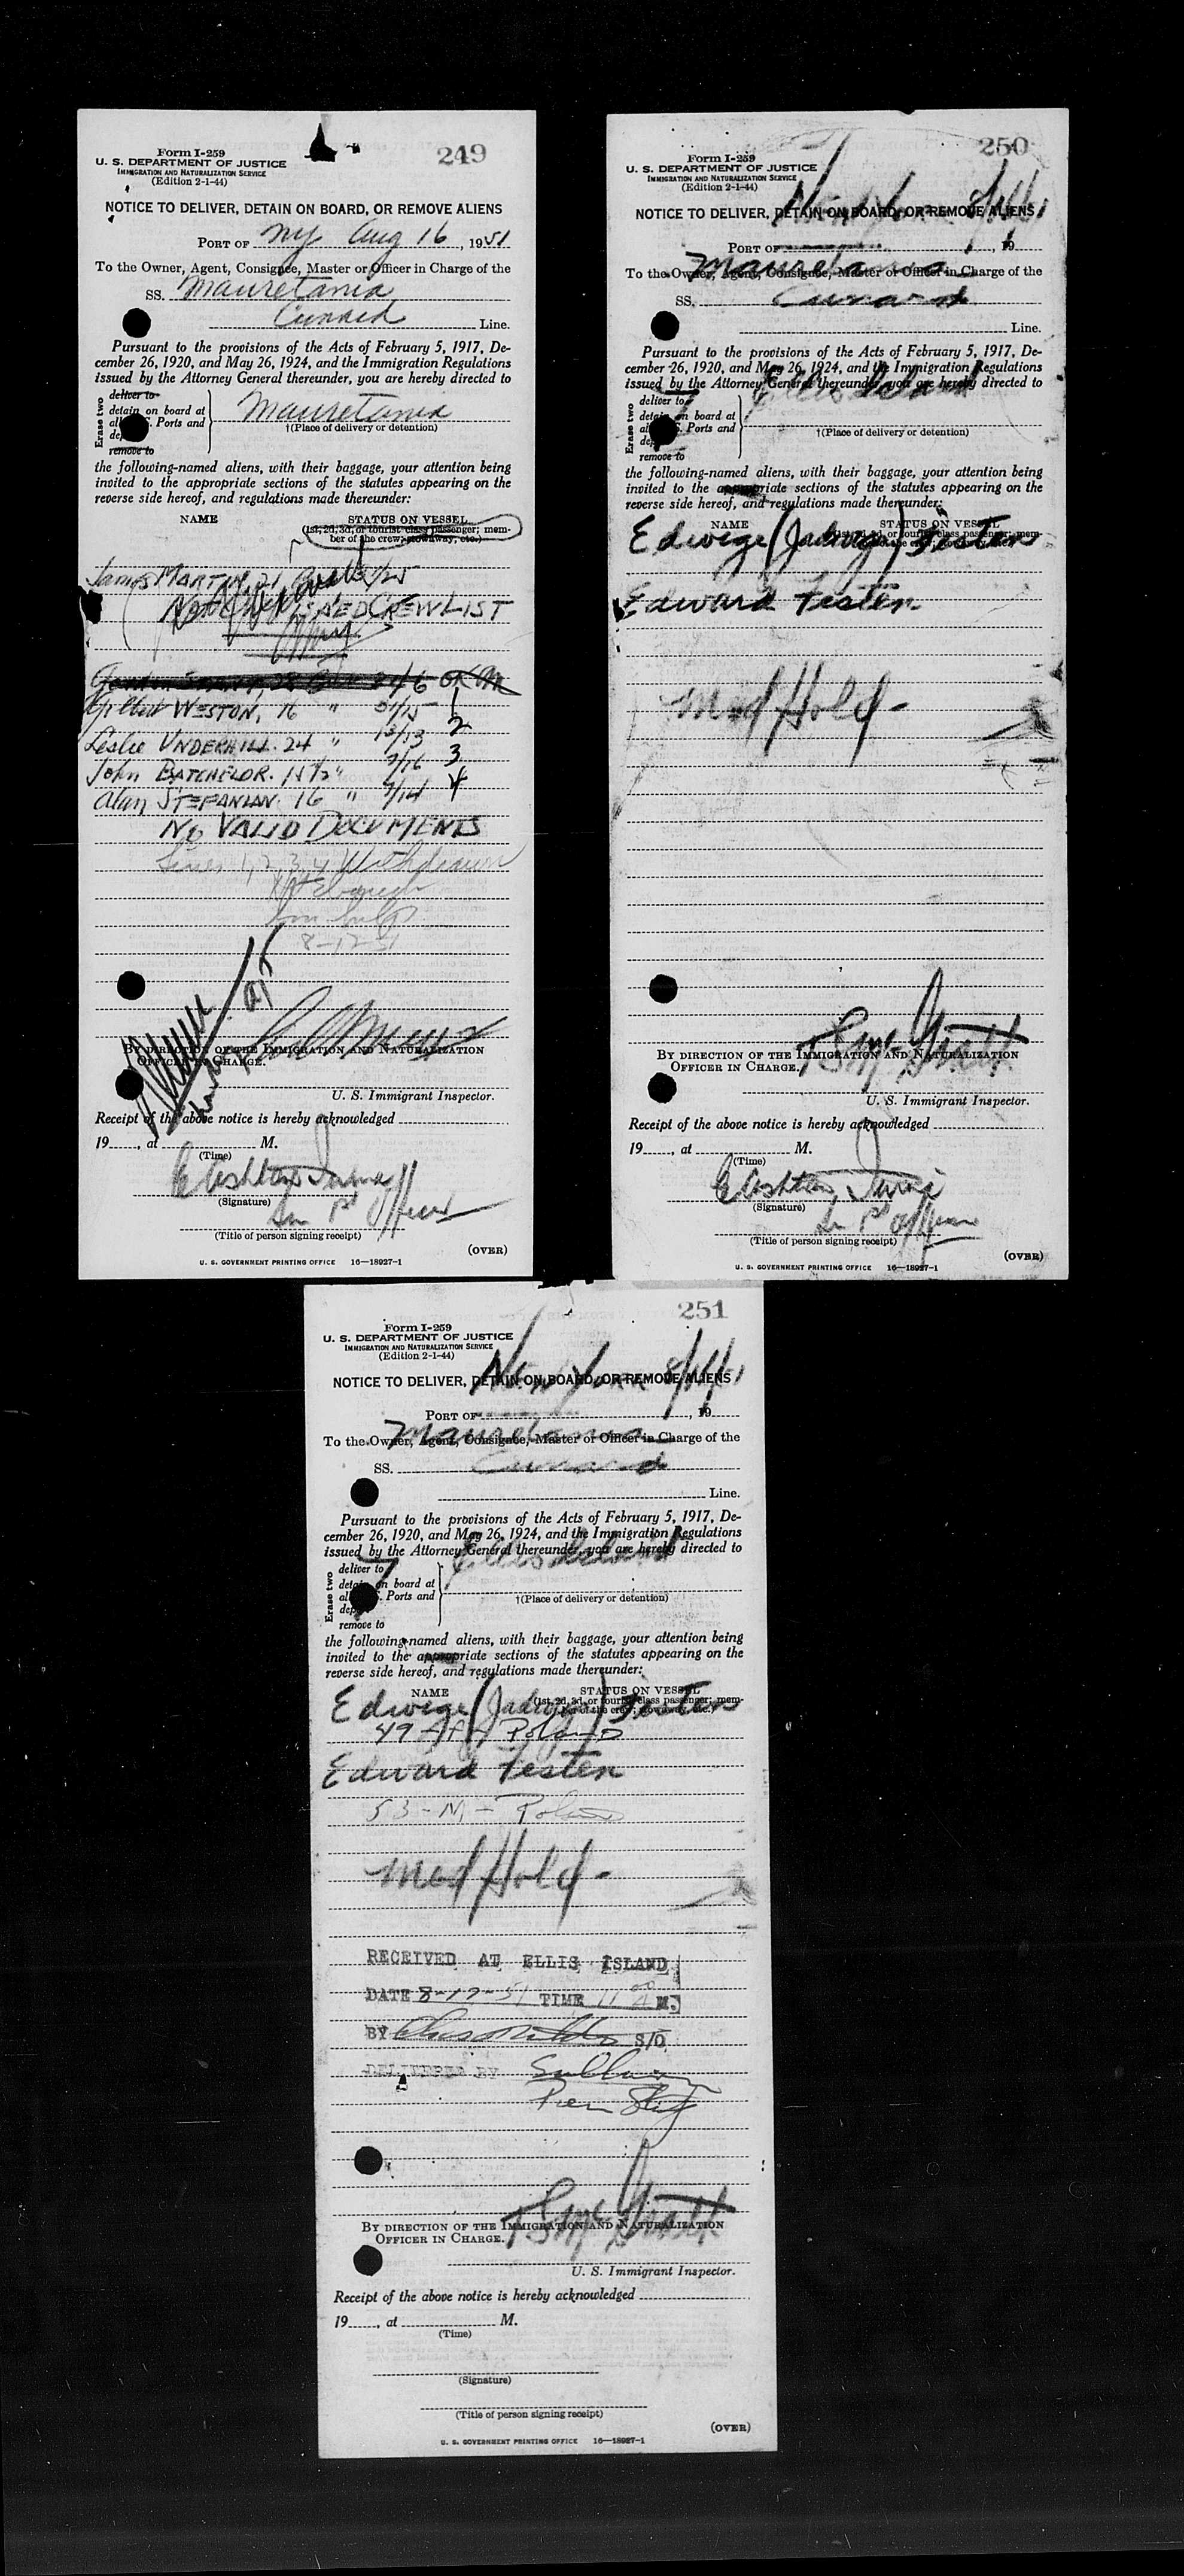 249
Form I-259
U. S. DEPARTMENT OF JUSTICE
IMMIGRATION AND NATURALIZATION SERVICE
(Edition 2-1-44)
NOTICE TO DELIVER, DETAIN ON BOARD, OR REMOVE ALIENS
PORT OF NY Aug 16, 1951
To the Owner, Agent, Consignee, Master or Officer in Charge of the
SS. Mauretania
Cunard Line.
Pursuant to the provisions of the Acts of February 5, 1917, De-
cember 26, 1920, and May 26, 1924, and the Immigration Regulations
issued by the Attorney General thereunder, you are hereby directed to
Erase two
deliver to
detain on board at
Ports and
remove to
Mauretania
†(Place of delivery or detention)
the following-named aliens, with their baggage, your attention being
invited to the appropriate sections of the statutes appearing on the
reverse side hereof, and regulations made thereunder:
NAME STATUS ON VESSEL
(1st, 2d, 3d, or tourist class passenger; mem-
ber of the crew; stowaway, etc.)
James MARTIN, 21
CREW LIST
24/6 OK
Gilbert WESTON, 16 " 1
Leslie UNDERHILL. 24 " 13/13 2
John BATCHELOR. 7/16 3
Alan STEFANIAN. 16 " 7/14 4
NO VALID DOCUMENTS
Lines 1, 2, 3, 4 Withdrawn
BY DIRECTION OF THE IMMIGRATION AND NATURALIZATION
OFFICER IN CHARGE.
U. S. Immigrant Inspector.
Receipt of the above notice is hereby acknowledged
19, at M.
(Time)
(Signature)
Officer
(Title of person signing receipt)
(OVER)
U. S. GOVERNMENT PRINTING OFFICE 16—18927-1
250
Form I-259
U. S. DEPARTMENT OF JUSTICE
IMMIGRATION AND NATURALIZATION SERVICE
(Edition 2-1-44)
New York
NOTICE TO DELIVER, DETAIN ON BOARD, OR REMOVE ALIENS
PORT OF , 19
Mauretania
To the Owner, Agent, Consignee, Master or Officer in Charge of the
SS. Cunard
Line.
Pursuant to the provisions of the Acts of February 5, 1917, De-
cember 26, 1920, and May 26, 1924, and the Immigration Regulations
issued by the Attorney General thereunder, you are hereby directed to
Ellis Island
Erase two
deliver to
detain on board at
Ports and
remove to
†(Place of delivery or detention)
the following-named aliens, with their baggage, your attention being
invited to the appropriate sections of the statutes appearing on the
reverse side hereof, and regulations made thereunder:
NAME STATUS ON VESSEL
Edwige (Jadwiga) Festen
Edward Festen
Med Hold -
BY DIRECTION OF THE IMMIGRATION AND NATURALIZATION
OFFICER IN CHARGE.
U. S. Immigrant Inspector.
Receipt of the above notice is hereby acknowledged
19, at M.
(Time)
(Signature)
(Title of person signing receipt)
(OVER)
U. S. GOVERNMENT PRINTING OFFICE 16—18927-1
251
Form I-259
U. S. DEPARTMENT OF JUSTICE
IMMIGRATION AND NATURALIZATION SERVICE
(Edition 2-1-44)
New York
NOTICE TO DELIVER, DETAIN ON BOARD, OR REMOVE ALIENS
PORT OF , 19
Mauretania
To the Owner, Agent, Consignee, Master or Officer in Charge of the
SS. Cunard
Line.
Pursuant to the provisions of the Acts of February 5, 1917, De-
cember 26, 1920, and May 26, 1924, and the Immigration Regulations
issued by the Attorney General thereunder, you are hereby directed to
Ellis Island
Erase two
deliver to
detain on board at
Ports and
remove to
†(Place of delivery or detention)
the following-named aliens, with their baggage, your attention being
invited to the appropriate sections of the statutes appearing on the
reverse side hereof, and regulations made thereunder:
NAME STATUS ON VESSEL
(1st, 2d, 3d, or tourist class passenger; mem-
ber of the crew; stowaway, etc.)
Edwige (Jadwiga) Festen
49 Poland
Edward Festen
53 - M - Poland
Med Hold -
RECEIVED AT ELLIS ISLAND
DATE 8-17-51 TIME 11 00 A M.
BY S/O
DELIVERED BY
BY DIRECTION OF THE IMMIGRATION AND NATURALIZATION
OFFICER IN CHARGE.
U. S. Immigrant Inspector.
Receipt of the above notice is hereby acknowledged
19, at M.
(Time)
(Signature)
(Title of person signing receipt)
(OVER)
U. S. GOVERNMENT PRINTING OFFICE 16—18927-1